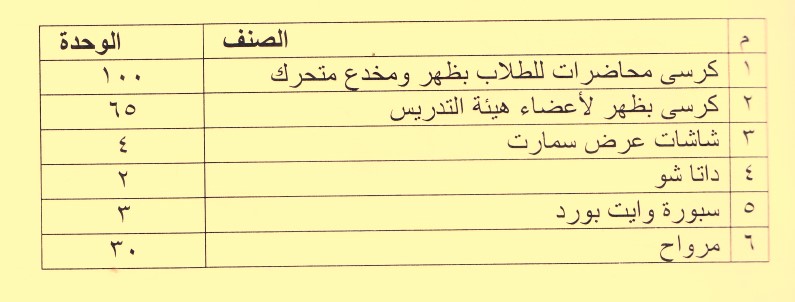 م الصنف الوحدة
١ كرسى محاضرات للطلاب بظهر ومخدع متحرك ١٠٠
٢ كرسى بظهر لأعضاء هيئة التدريس ٦٥
٣ شاشات عرض سمارت ٤
٤ داتا شو ٢
٥ سبورة وايت بورد ٣
٦ مرواح ٣٠